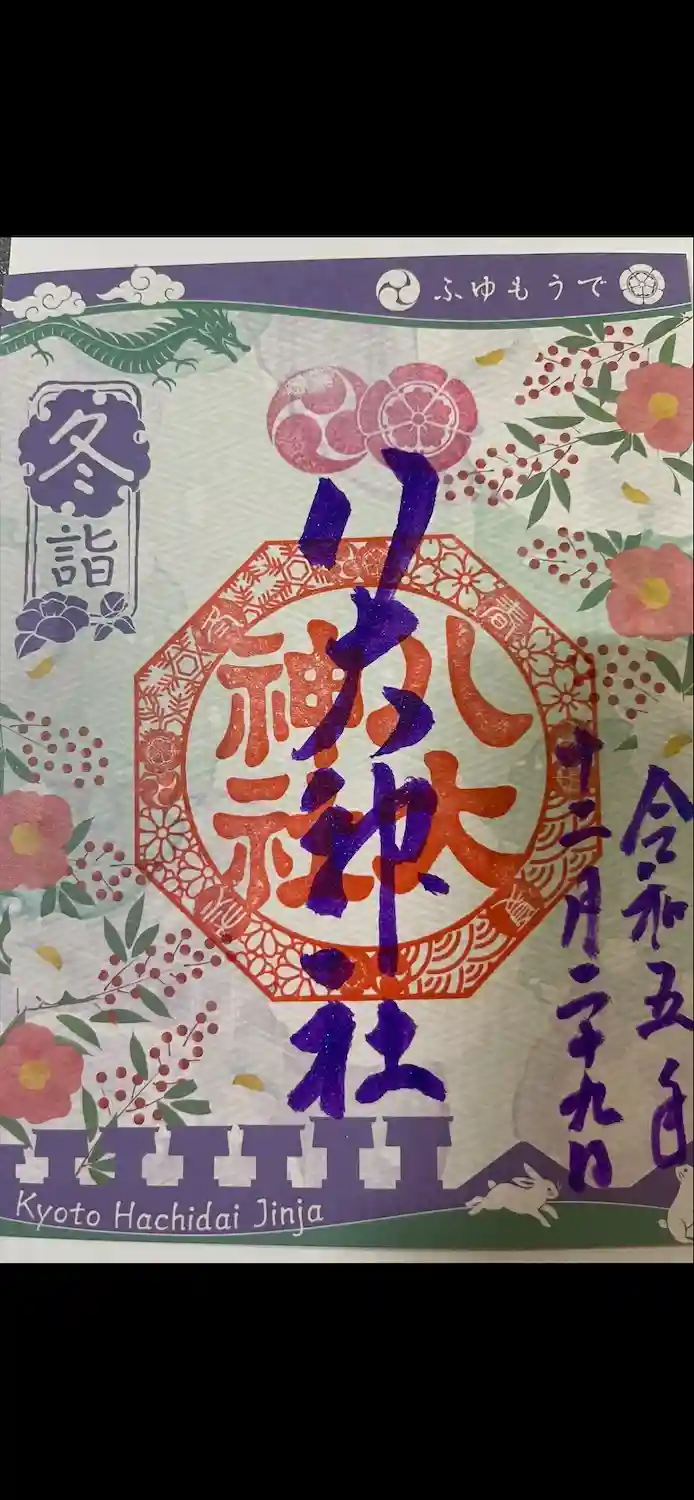 ふゆもうで
冬詣
八大神社
八大
神社
春
冬
令和五年
十二月二十九日
Kyoto Hachidai Jinja